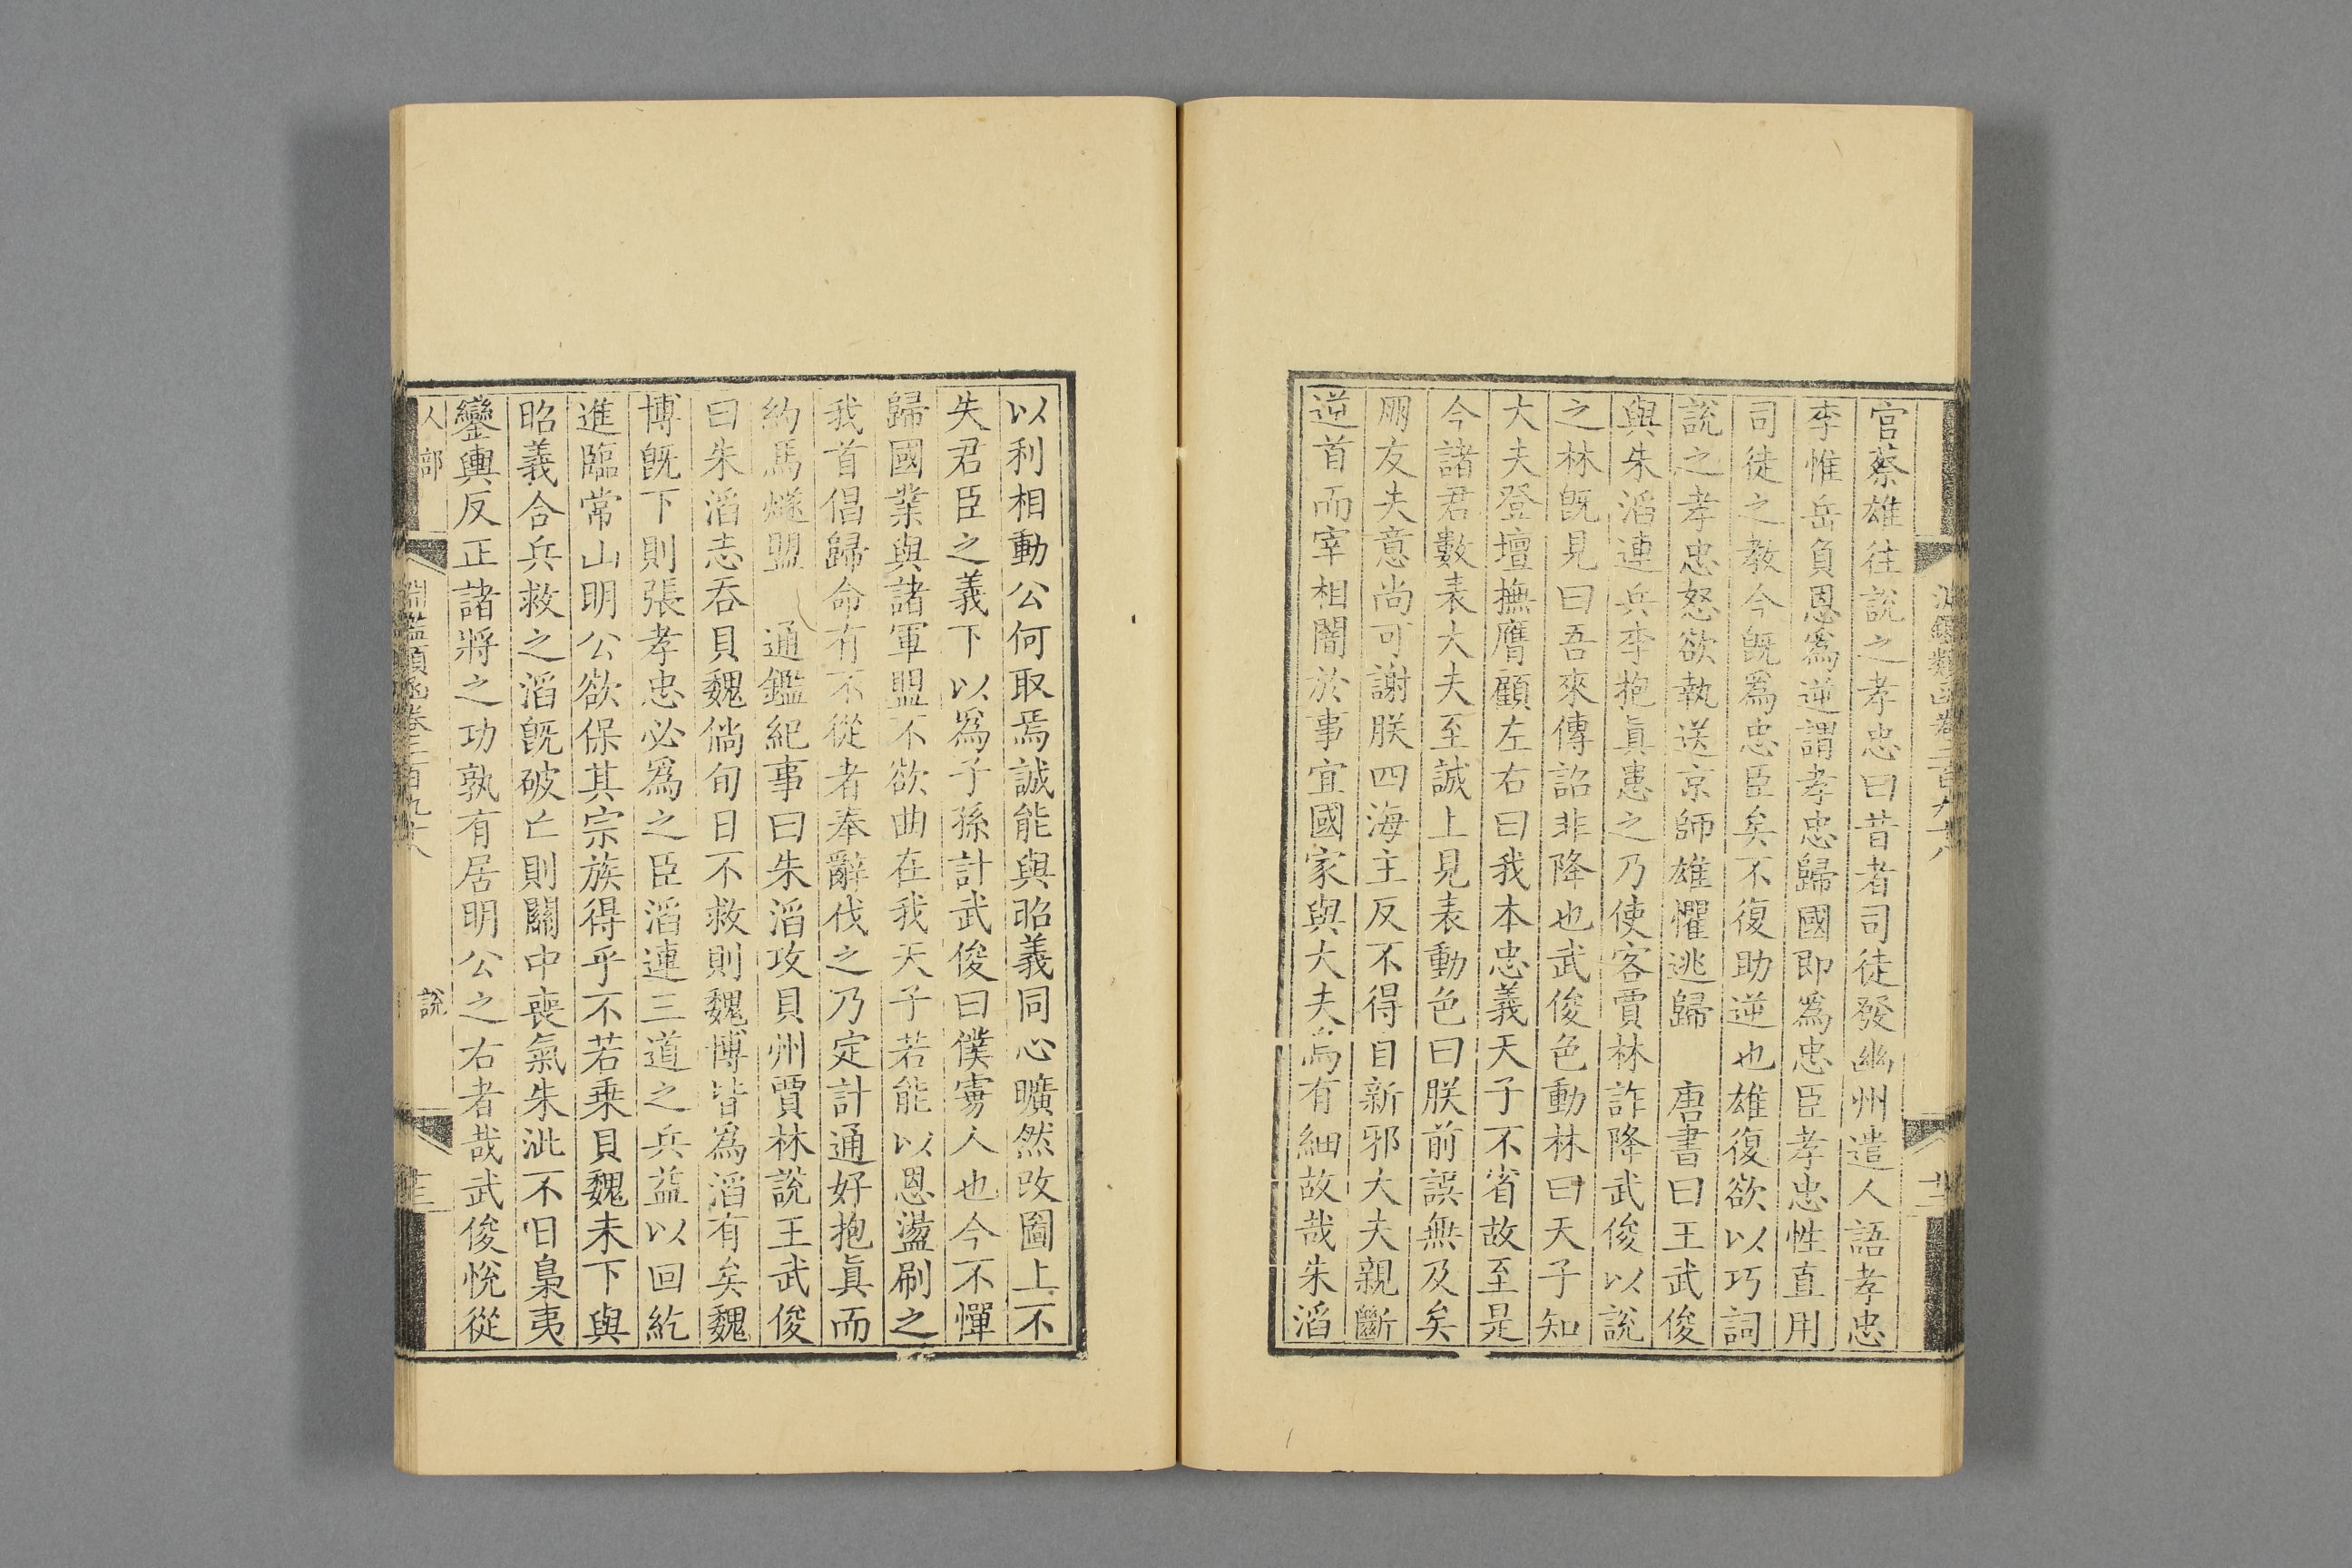 官蔡雄往說之孝忠曰昔者司徒發幽州遣人語孝忠
李惟岳負恩爲逆謂孝忠歸國即爲忠臣孝忠性直用
司徒之教今既爲忠臣矣不復助逆也雄復欲以巧詞
說之孝忠怒欲執送京師雄懼逃歸　唐書曰王武俊
與朱滔連兵李抱眞患之乃使客賈林詐降武俊以說
之林既見曰吾來傳詔非降也武俊色動林曰天子知
大夫登壇撫膺顧左右曰我本忠義天子不省故至是
今諸君數表大夫至誠上見表動色曰朕前誤無及矣
朋友夫意尚可謝朕四海主反不得自新邪大夫親斷
逆首而宰相闇於事宜國家與大夫焉有細故哉朱滔
以利相動公何取焉誠能與昭義同心曠然改圖上不
失君臣之義下以爲子孫計武俊曰僕虜人也今不憚
歸國業與諸軍盟不欲曲在我天子若能以恩盪刷之
我首倡歸命有不從者奉辭伐之乃定計通好抱眞而
約馬燧盟　通鑑紀事曰朱滔攻貝州賈林說王武俊
曰朱滔志吞貝魏倘旬日不救則魏博皆爲滔有矣魏
博既下則張孝忠必爲之臣滔連三道之兵益以回紇
進臨常山明公欲保其宗族得乎不若乘貝魏未下與
昭義合兵救之滔既破亡則關中喪氣朱泚不日梟夷
鑾輿反正諸將之功孰有居明公之右者哉武俊悅從
人部
淵鑑類函卷二百九十八
說